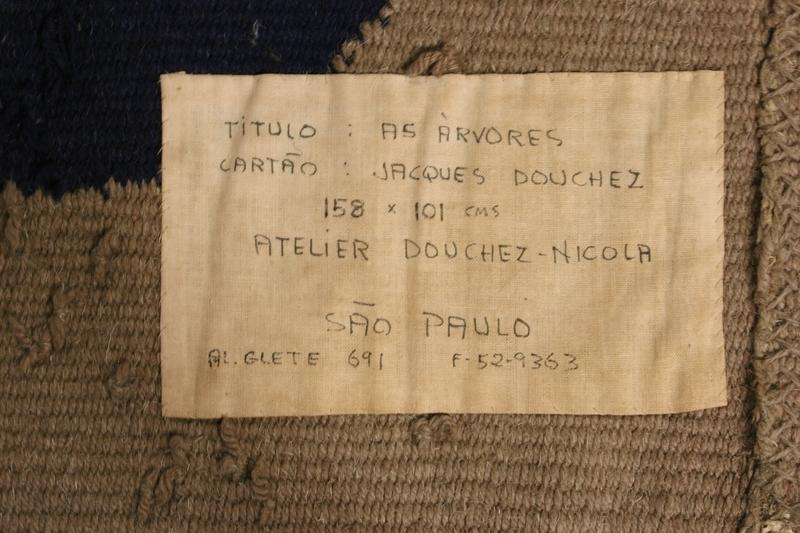 TÍTULO : AS ÀRVORES
CARTÃO : JACQUES DOUCHEZ
158 x 101 CMS
ATELIER DOUCHEZ-NICOLA
SÃO PAULO
AL. GLETE 691 F-52-9363